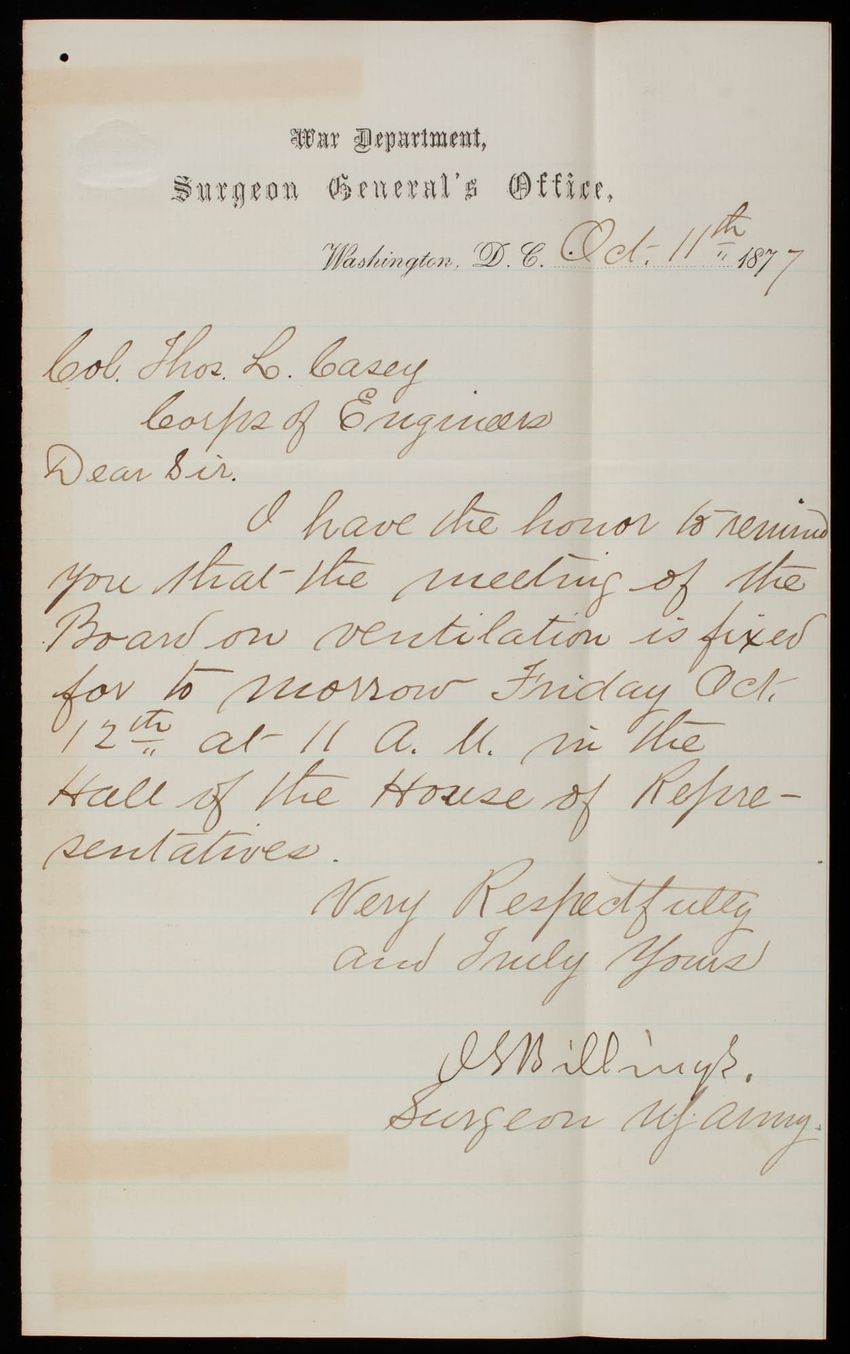 War Department,
Surgeon General's Office,
Washington, D. C. Oct. 11th 1877
Col. Thos. L. Casey
Corps of Engineers
Dear Sir.
I have the honor to remind
you that the meeting of the
Board on ventilation is fixed
for to morrow Friday Oct.
12th at 11 A. M. in the
Hall of the House of Repre-
sentatives.
Very Respectfully
and Truly Yours
J S Billings.
Surgeon US Army.